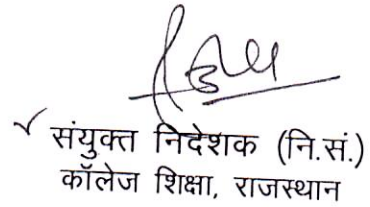 संयुक्त निदेशक (नि.सं.)
कॉलेज शिक्षा, राजस्थान